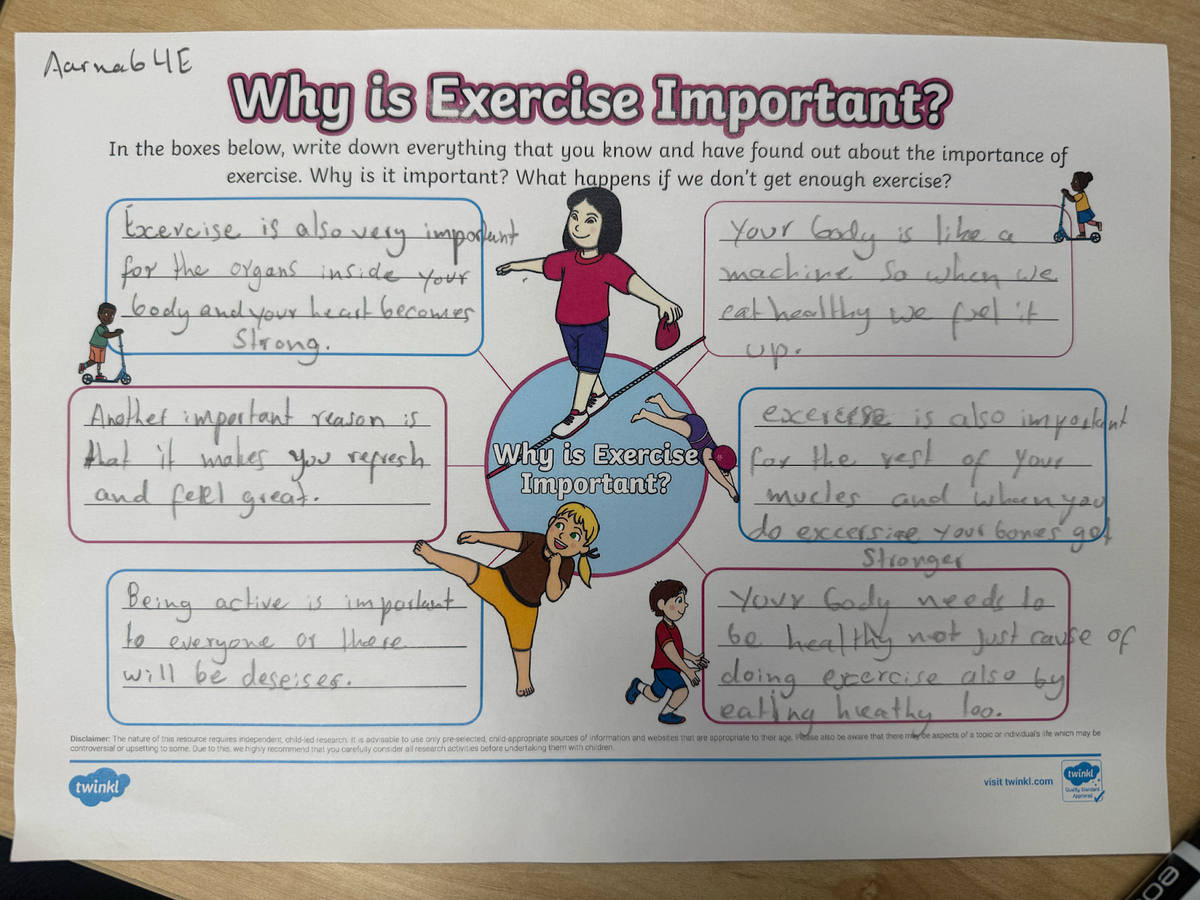 Aarnab 4E
Why is Exercise Important?
In the boxes below, write down everything that you know and have found out about the importance of
exercise. Why is it important? What happens if we don't get enough exercise?
Exercise is also very important
for the organs inside your
body and your heart becomes
Strong.
Your body is like a
machine so when we
eat healthy we fuel it
up.
Another important reason is
that it makes you refresh
and feel great.
Why is Exercise
Important?
exercise is also important
for the rest of your
mucles and when you
do excersise your bones get
Stronger
Being active is important
to everyone or there
will be deseises.
Your body needs to
be healthy not just cause of
doing exercise also by
eating hreathy too.
Disclaimer: The nature of this resource requires independent, child-led research. It is advisable to use only pre-selected, child-appropriate sources of information and websites that are appropriate to their age. Please also be aware that there may be aspects of a topic or individual's life which may be
controversial or upsetting to some. Due to this, we highly recommend that you carefully consider all research activities before undertaking them with children.
twinkl
visit twinkl.com
twinkl
Quality Standard
Approved